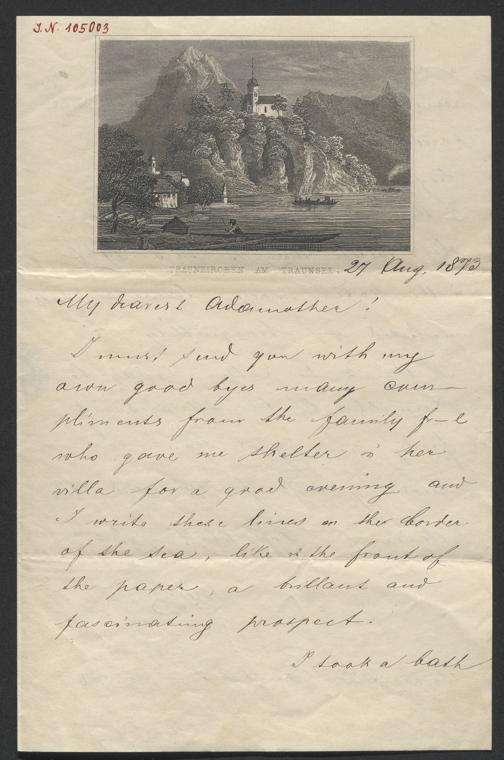 I.N. 105003
TRAUNKIRCHEN AM TRAUNSEE.
27 Aug. 1873
My dearest Adamother!
I must send you with my
own good byes many com-
pliments from the family f-l
who gave me shelter in her
villa for a good evening and
I write these lines on the border
of the sea, like in the front of
the paper, a brillant and
fascinating prospect.
I took a bath